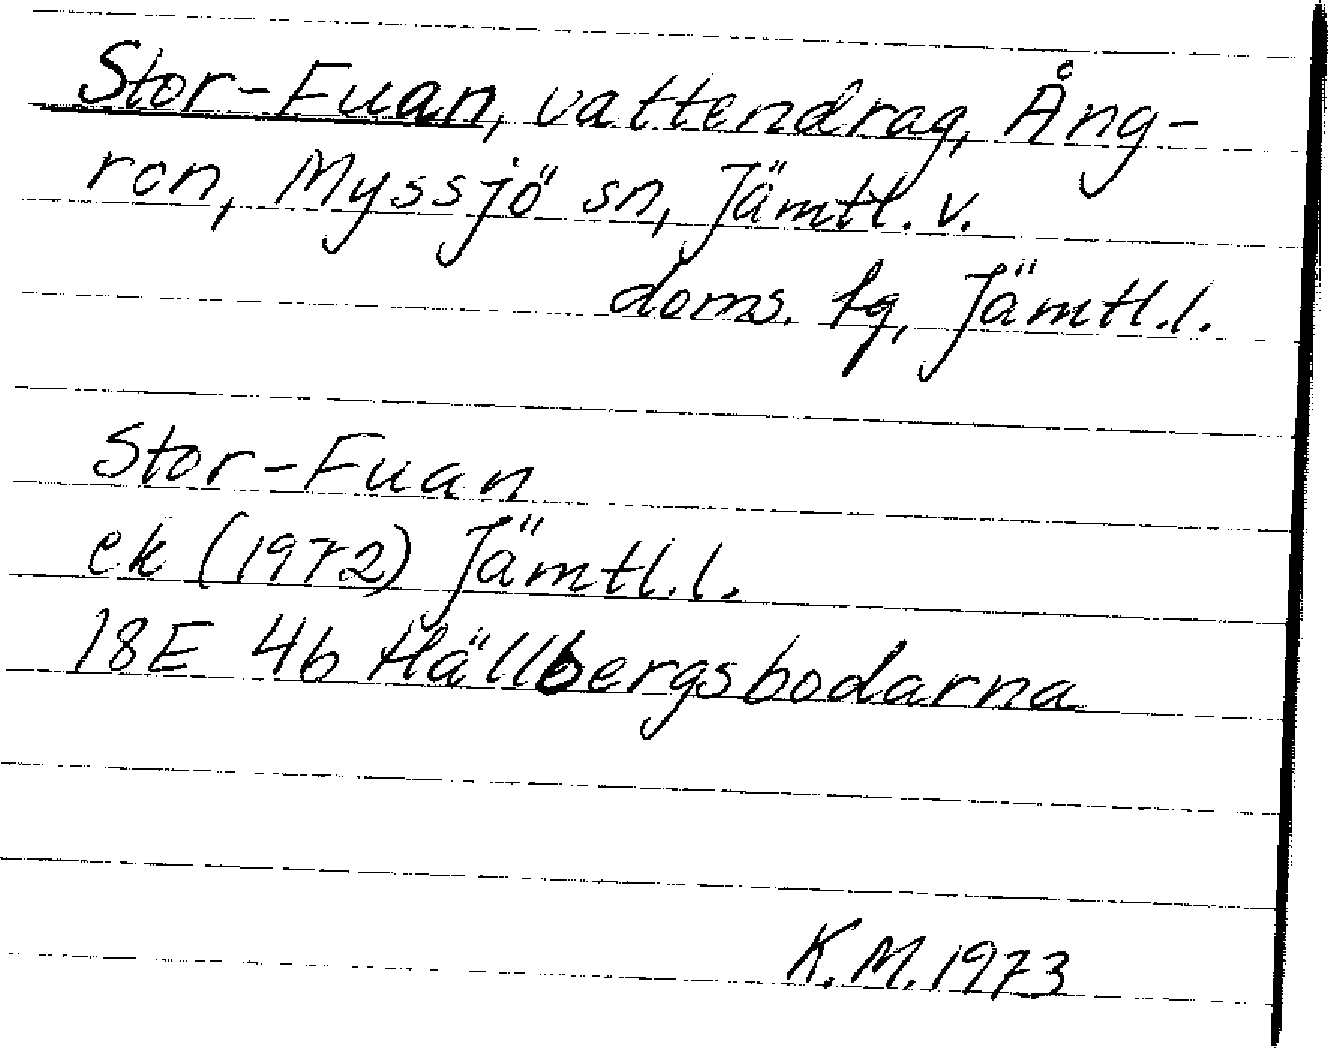 Stor-Fuan, vattendrag, Ång-
ron, Myssjö sn, Jämtl. v.
doms. fg, Jämtl.l.
Stor-Fuan
ek (1972) Jämtl.l.
18E 4b Hällbergsbodarna
K.M.1973